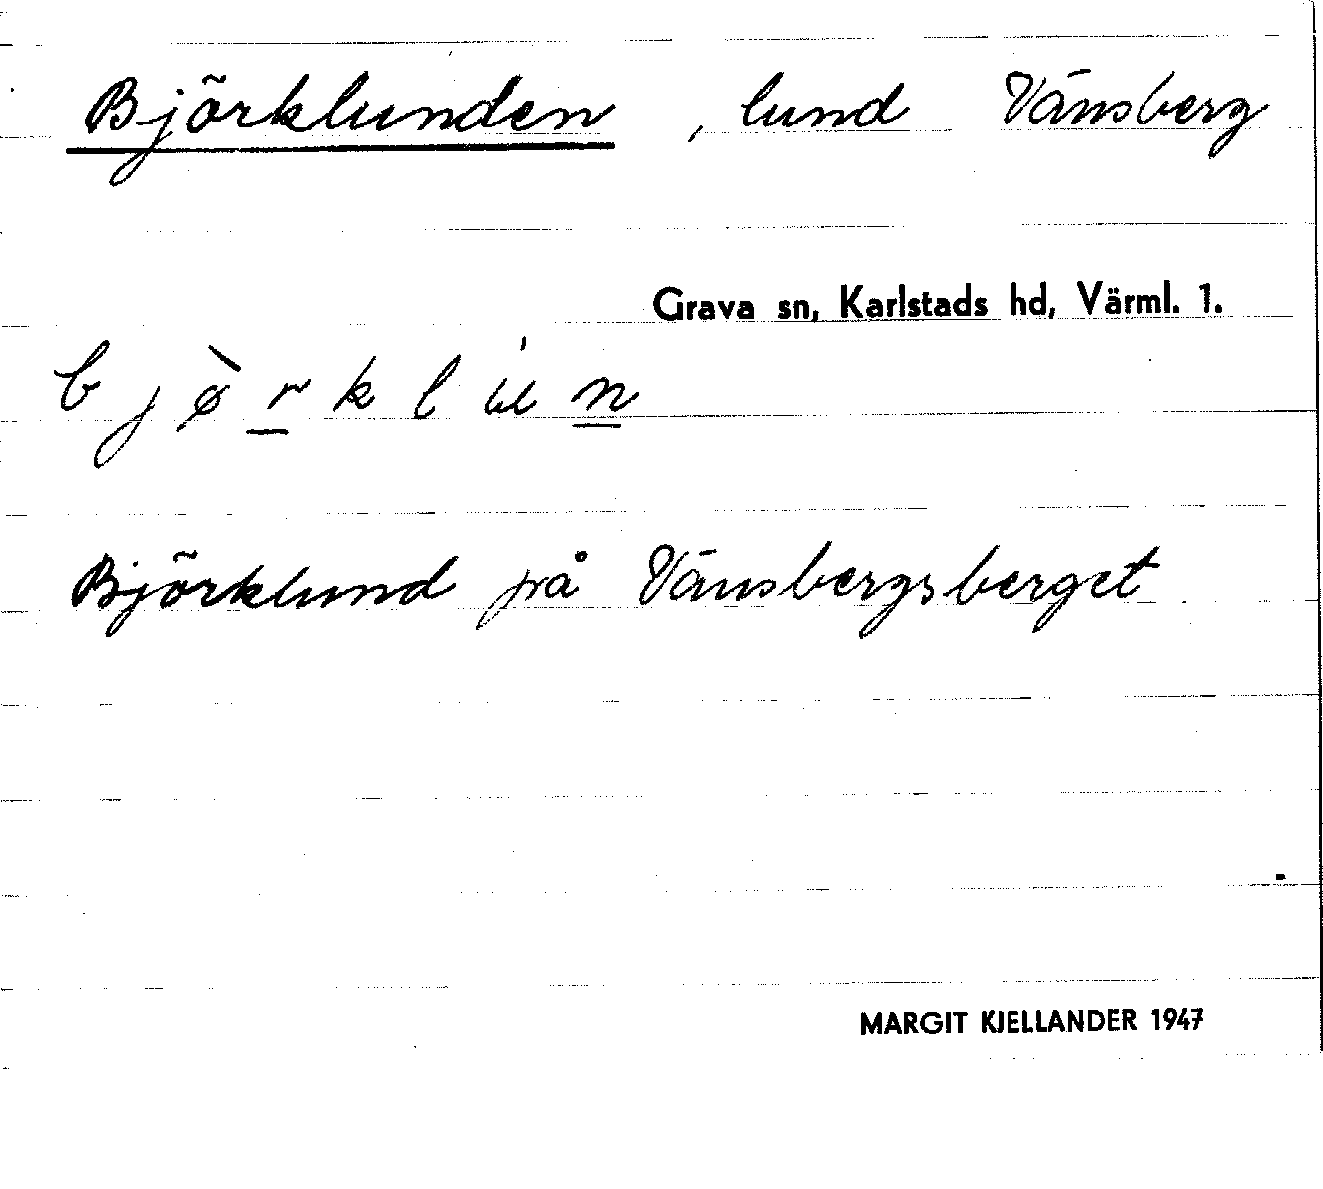 Björklunden, lund Vänsberg
Grava sn, Karlstads hd, Värml. 1.
bjø̀r̲klu̇n̲
Björklund på Vänsbergsberget
MARGIT KJELLANDER 1947